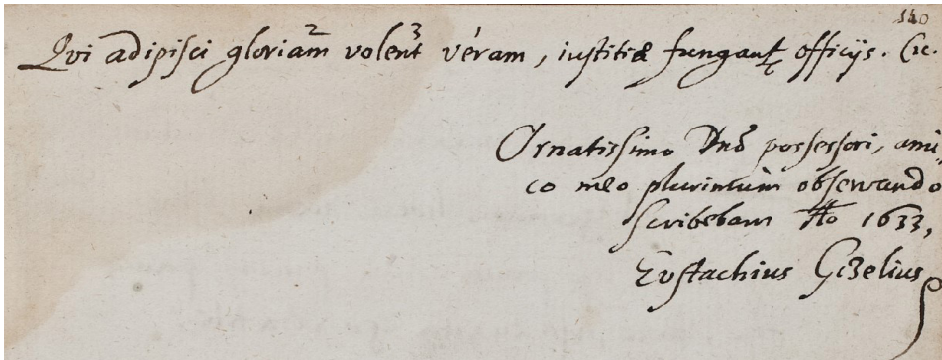 140
Qvi adipisci gloriam² volent³ veram, iustitiæ fungant officijs. Cic.
Ornatissimo Dno possessori, ami-
co meo plurimum observando
scribebam Ao 1633,
Eustachius Gizelius